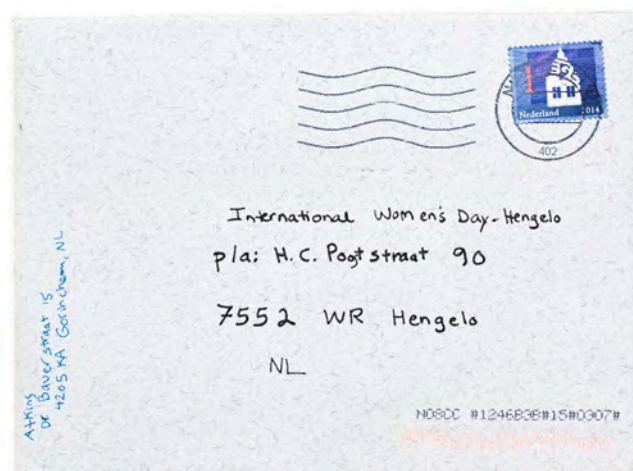 1
Nederland 2014
402
International Women's Day-Hengelo
p/a: H.C. Pootstraat 90
7552 WR Hengelo
NL
Atkins
Dr Bauerstraat 15
4205 KA Gorinchem, NL
NOSCC #1246B3B#15#0307#